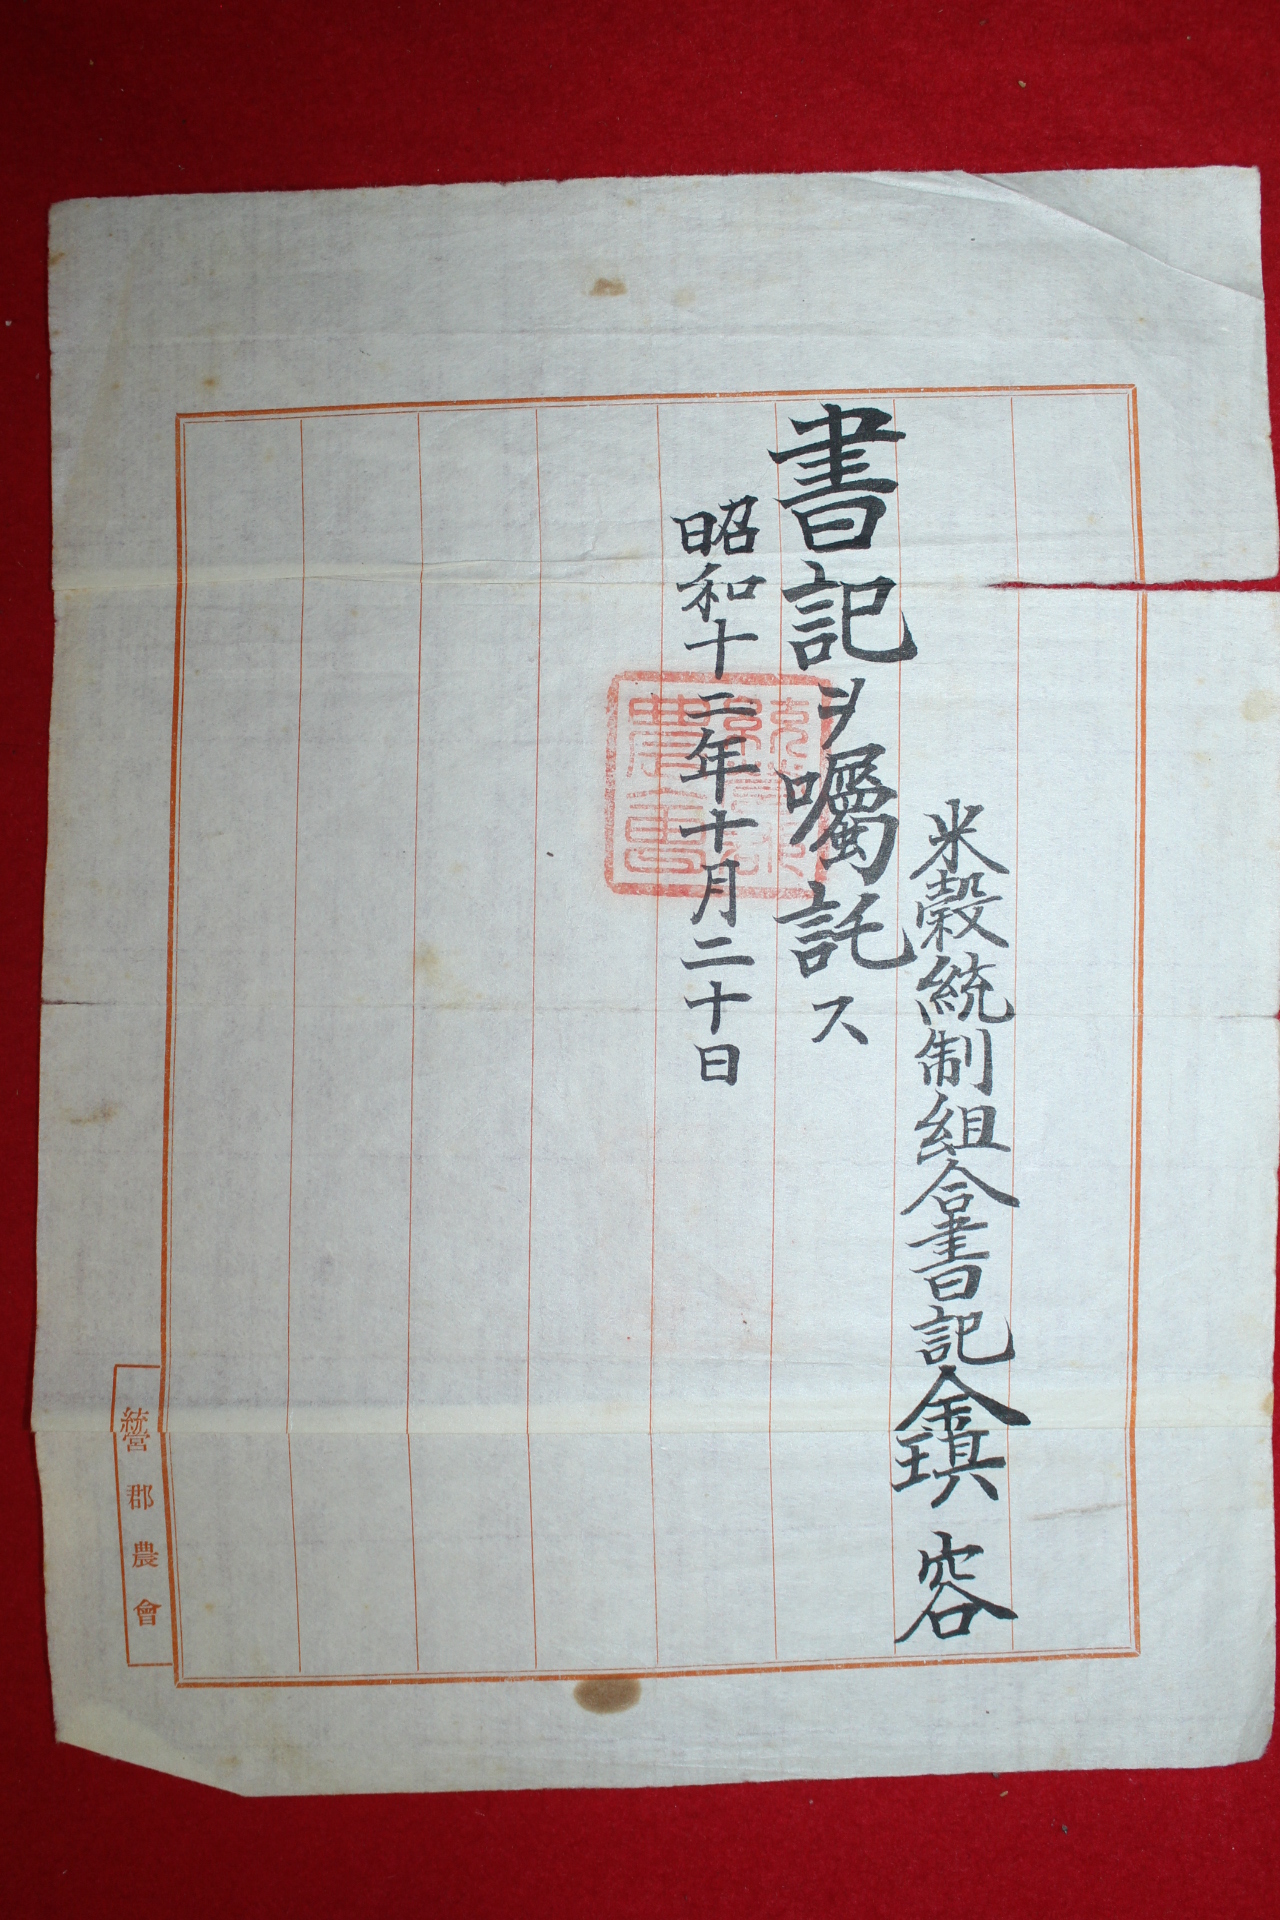 米穀統制組合書記金琪容
書記ヲ囑託ス
昭和十二年十月二十日
統營郡農會